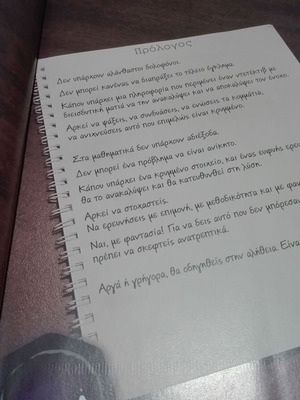 Πρόλογος
Δεν υπάρχουν αλάνθαστοι δολοφόνοι.
Δεν μπορεί κανένας να διαπράξει το τέλειο έγκλημα.
Κάπου υπάρχει μια πληροφορία που περιμένει έναν ντετέκτιβ με
διεισδυτική ματιά να την ανακαλύψει και να αποκαλύψει τον ένοχο.
Αρκεί να ψάξεις, να συνδυάσεις, να ενώσεις τα κομμάτια,
να ανιχνεύσεις αυτό που επιμελώς είναι κρυμμένο.
Στα μαθηματικά δεν υπάρχουν αδιέξοδα.
Δεν μπορεί ένα πρόβλημα να είναι ανίκητο.
Κάπου υπάρχει ένα κρυμμένο στοιχείο, και ένας ευφυής ερευ
θα το ανακαλύψει και θα κατευθυνθεί στη λύση.
Αρκεί να στοχαστείς.
Να ερευνήσεις με επιμονή, με μεθοδικότητα και με φαν
Ναι, με φαντασία! Για να δεις αυτό που δεν μπόρεσα
πρέπει να σκεφτείς ανατρεπτικά.
Αργά ή γρήγορα, θα οδηγηθείς στην αλήθεια. Είνα